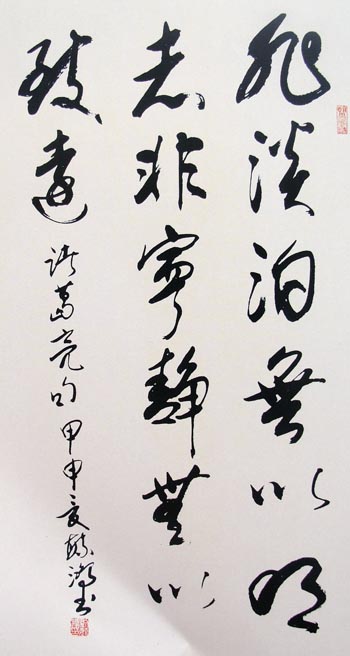 非淡泊無以明
志非寧靜無以
致遠
诸葛亮句 甲申夏 书